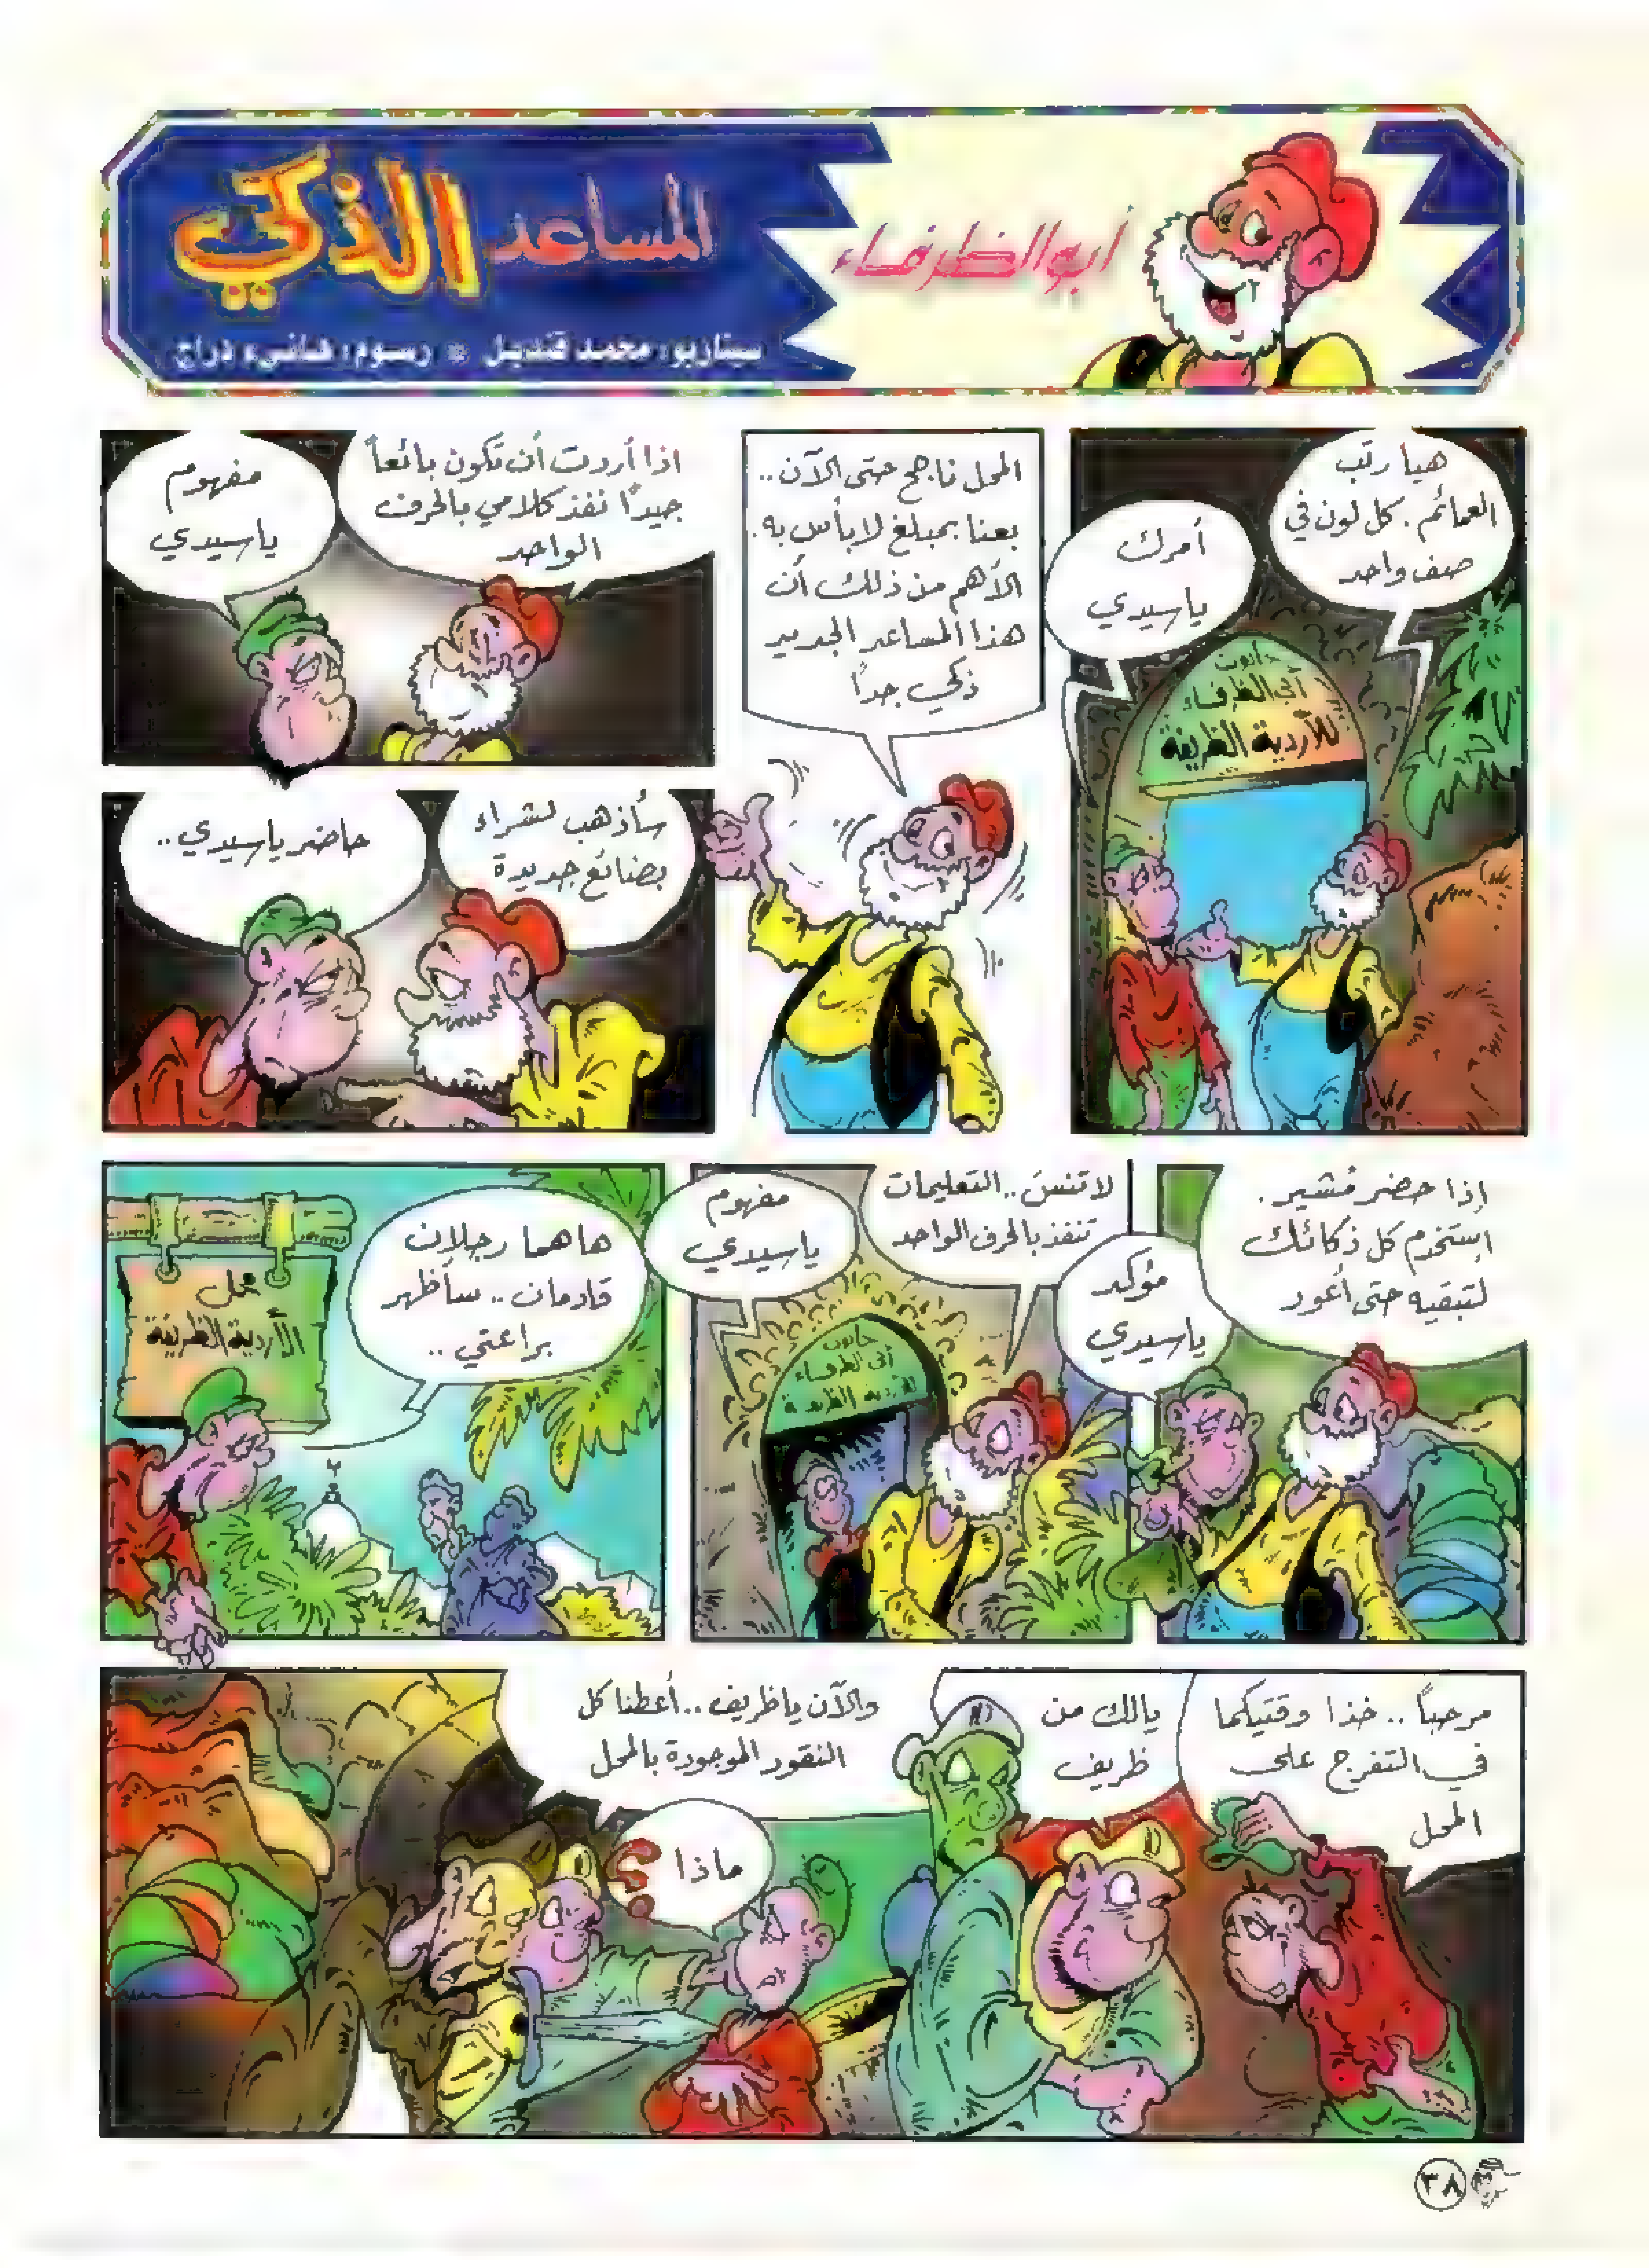 أبو الظرفاء
المساعد الذكي
سيناريو: محمد قنديل * رسوم: هانيء دراج
هيا رتب
العمائم. كل لون في
صف واحد
أمرك
ياسيدي
حانوت
أبي الظرفاء
للأردية الظريفة
المحل ناجح حتى الآن..
بعنا بمبلغ لا بأس به.
الأهم من ذلك أن
هذا المساعد الجديد
ذكي جداً
اذا أردت أن تكون بائعاً
جيداً نفذ كلامي بالحرف
الواحد
مفهوم
ياسيدي
سأذهب لشراء
بضائع جديدة
حاضر ياسيدي..
إذا حضر مشير.
استخدم كل ذكائك
لتبقيه حتى أعود
مؤكد
ياسيدي
لا تنس.. التعليمات
تنفذ بالحرف الواحد
مفهوم
ياسيدي
حانوت
أبي الظرفاء
للأردية الظريفة
ها هما رجلان
قادمان.. سأظهر
براعتي..
محل
الأردية الظريفة
مرحباً.. خذا وقتيكما
في التفرج على
المحل
يالك من
ظريف
والآن ياظريف.. أعطنا كل
النقود الموجودة بالمحل
ماذا ؟!
٣٨